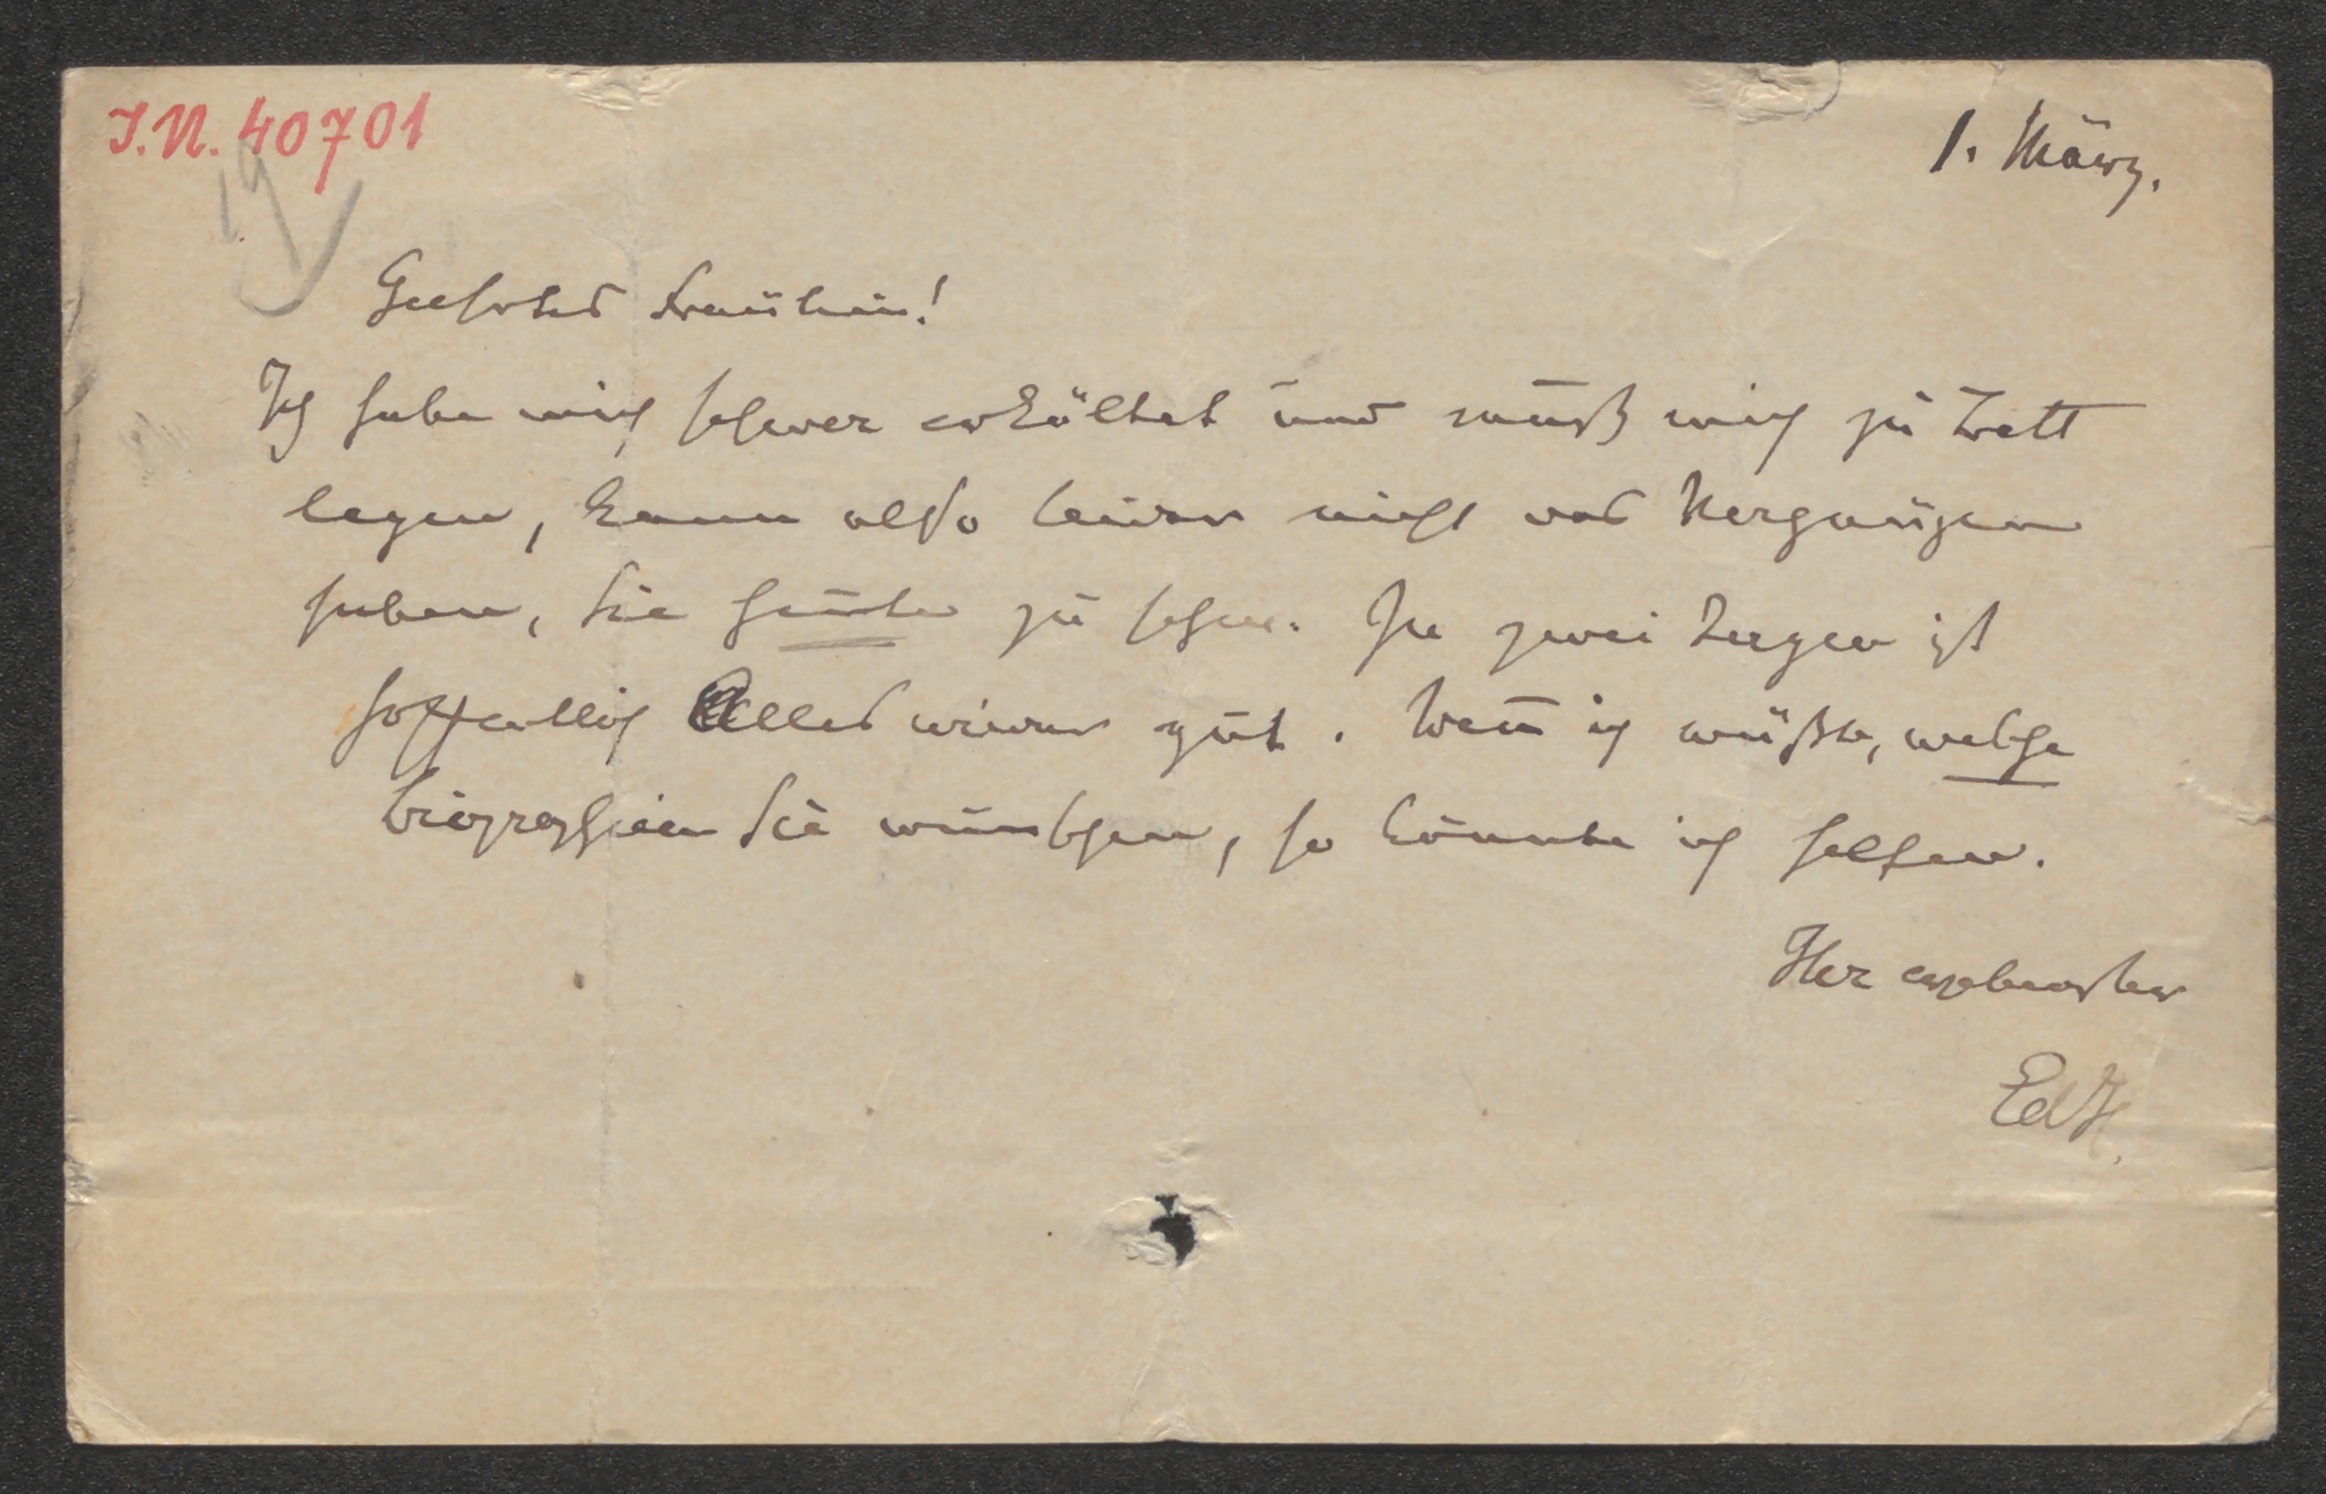 I.N. 40701
19
1. März.
Geehrtes Fräulein!
Ich habe mich schwer erkältet und muß mich zu Bett
legen, kann also leider nicht das Vergnügen
haben, Sie heute zu sehen. In zwei Tagen ist
hoffentlich Alles wieder gut. Wen̄ ich wüßte, welche
Biographien Sie wünschen, so könnte ich helfen.
Ihr ergebenster
EdH.